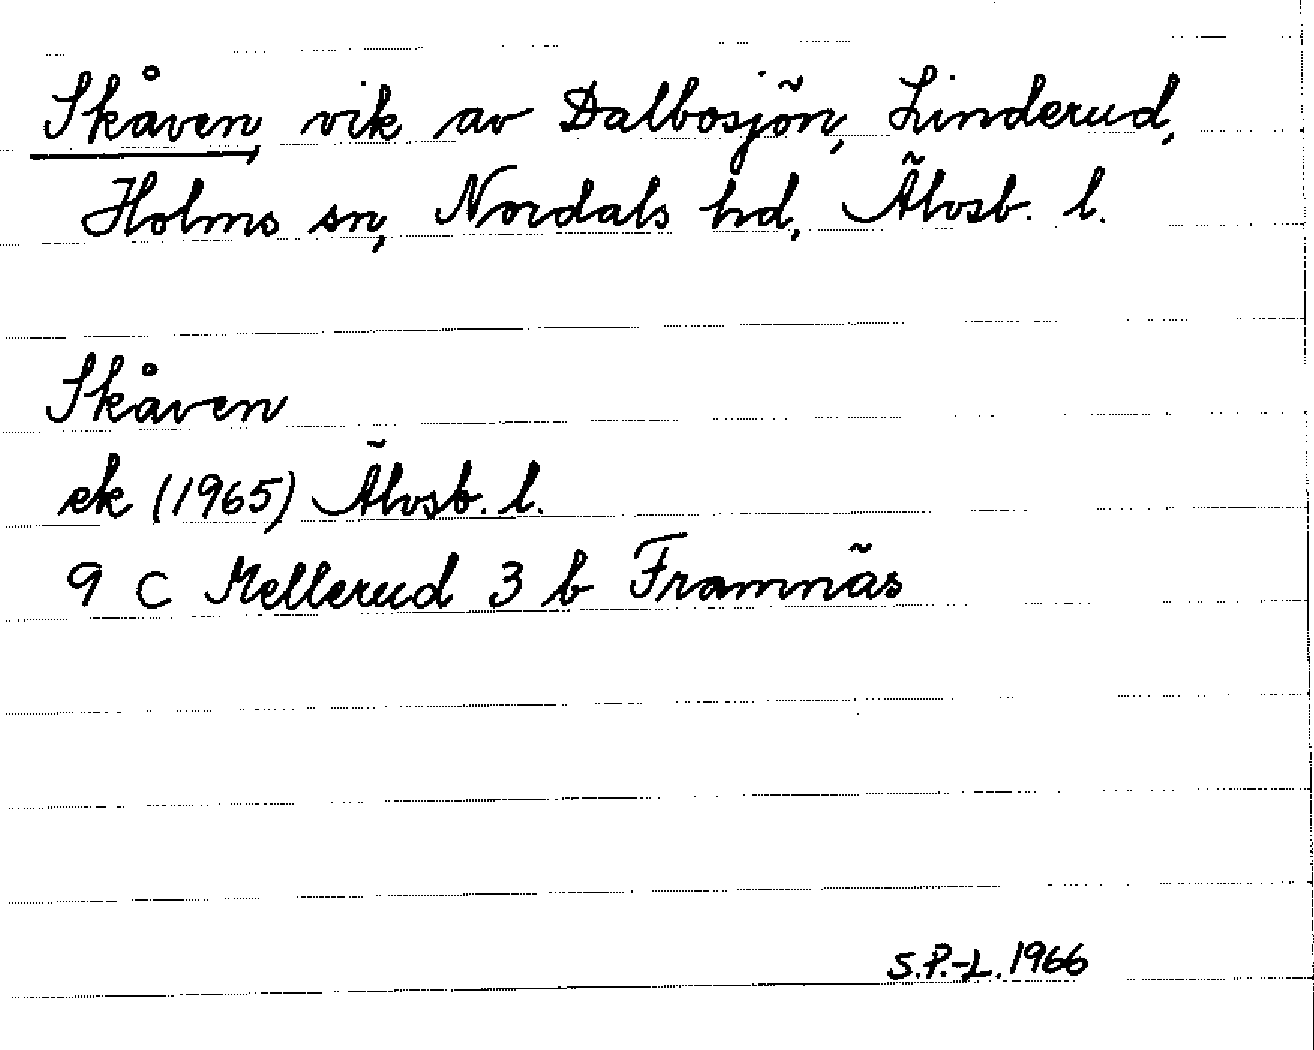 Skåven, vik av Dalbosjön, Linderud,
Holms sn, Nordals hd, Älvsb. l.
Skåven
ek (1965) Älvsb. l.
9 C Mellerud 3 b Framnäs
S.P.-L. 1966